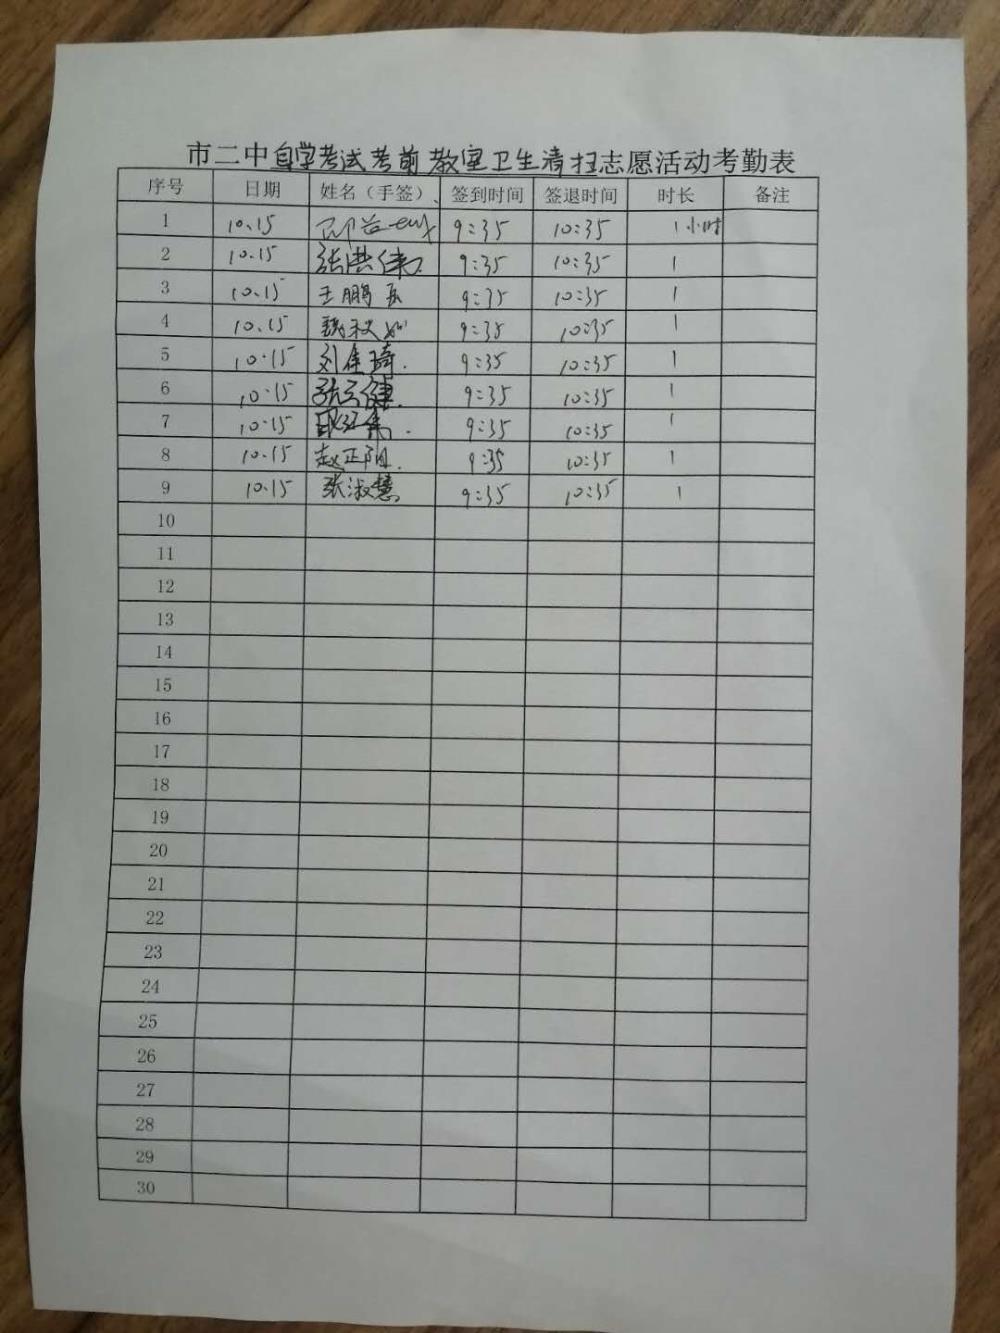 市二中自学考试考前教室卫生清扫志愿活动考勤表
序号 日期 姓名（手签） 签到时间 签退时间 时长 备注
1 10.15 9:35 10:35 1小时
2 10.15 张洪伟 9:35 10:35 1
3 10.15 王鹏 9:35 10:35 1
4 10.15 9:35 10:35 1
5 10.15 刘佳琦 9:35 10:35 1
6 10.15 张 9:35 10:35 1
7 10.15 9:35 10:35 1
8 10.15 赵正阳 9:35 10:35 1
9 10.15 张淑慧 9:35 10:35 1
10
11
12
13
14
15
16
17
18
19
20
21
22
23
24
25
26
27
28
29
30